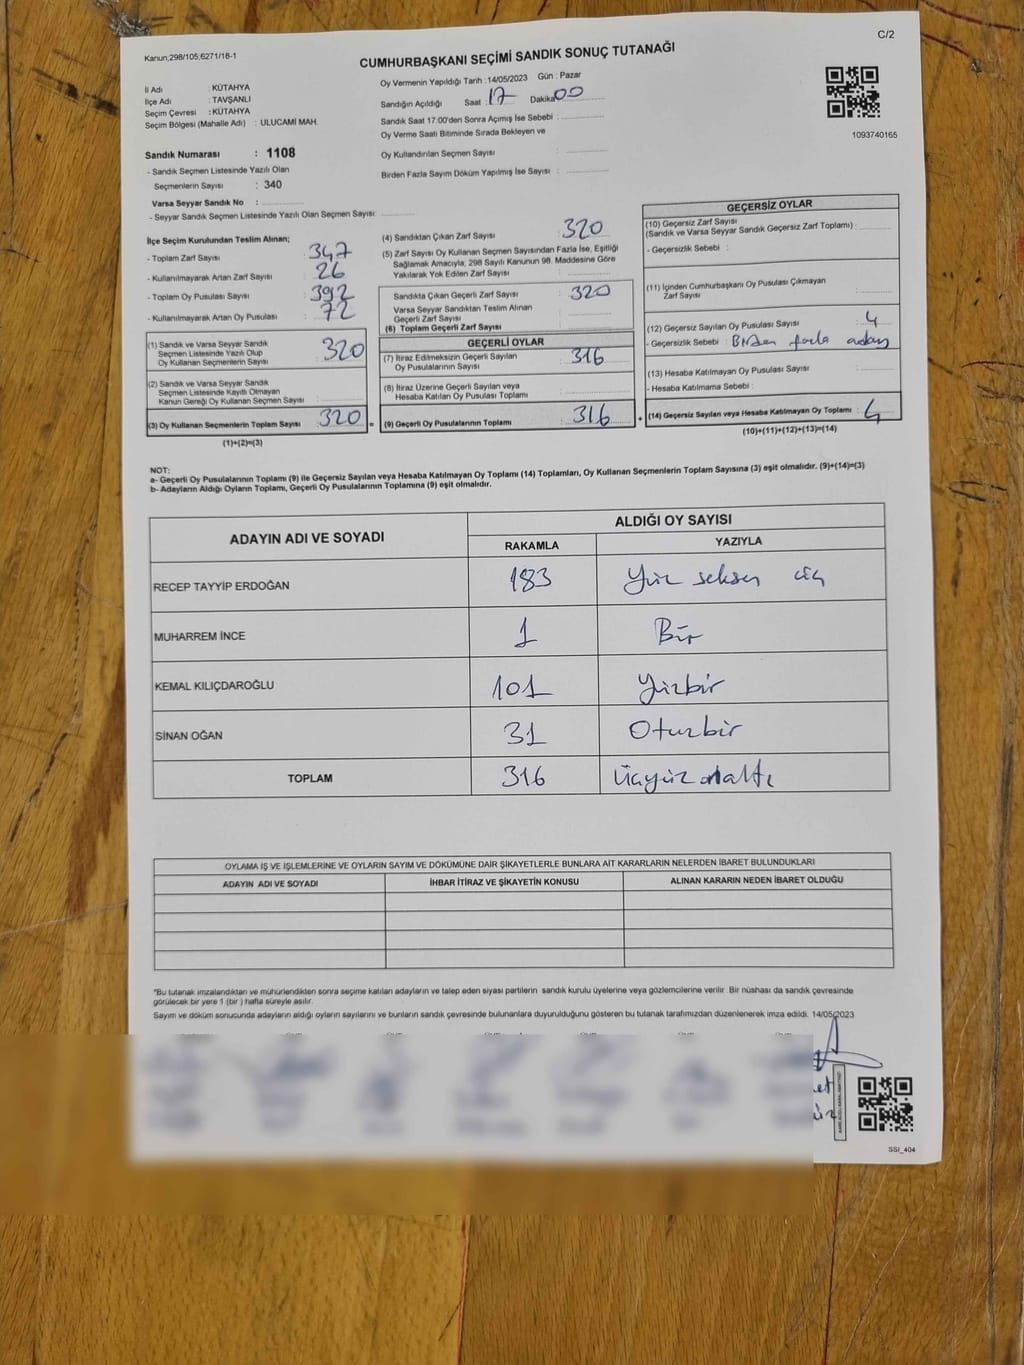 C/2
Kanun;298/105;6271/18-1
CUMHURBAŞKANI SEÇİMİ SANDIK SONUÇ TUTANAĞI
İl Adı : KÜTAHYA
İlçe Adı : TAVŞANLI
Seçim Çevresi : KÜTAHYA
Seçim Bölgesi (Mahalle Adı) : ULUCAMİ MAH.
Oy Vermenin Yapıldığı Tarih : 14/05/2023 Gün : Pazar
Sandığın Açıldığı Saat : 17 Dakika 00
Sandık Saat 17.00'den Sonra Açımış İse Sebebi :
Oy Verme Saati Bitiminde Sırada Bekleyen ve
Oy Kullandırılan Seçmen Sayısı :
Birden Fazla Sayım Döküm Yapılmış İse Sayısı :
1093740165
Sandık Numarası : 1108
- Sandık Seçmen Listesinde Yazılı Olan
Seçmenlerin Sayısı : 340
Varsa Seyyar Sandık No :
- Seyyar Sandık Listesinde Yazılı Olan Seçmen Sayısı:
İlçe Seçim Kurulundan Teslim Alınan;
- Toplam Zarf Sayısı : 347
- Kullanılmayarak Artan Zarf Sayısı : 26
- Toplam Oy Pusulası Sayısı : 392
- Kullanılmayarak Artan Oy Pusulası : 72
(1) Sandık ve Varsa Seyyar Sandık
Seçmen Listesinde Yazılı Olup
Oy Kullanan Seçmenlerin Sayısı : 320
(2) Sandık ve Varsa Seyyar Sandık
Seçmen Listesinde Kayıtlı Olmayan
Kanun Gereği Oy Kullanan Seçmen Sayısı :
(3) Oy Kullanan Seçmenlerin Toplam Sayısı : 320 =
(1)+(2)=(3)
(4) Sandıktan Çıkan Zarf Sayısı : 320
(5) Zarf Sayısı Oy Kullanan Seçmen Sayısından Fazla İse, Eşitliği
Sağlamak Amacıyla, 298 Sayılı Kanunun 98. Maddesine Göre
Yakılarak Yok Edilen Zarf Sayısı :
Sandıkta Çıkan Geçerli Zarf Sayısı : 320
Varsa Seyyar Sandıktan Teslim Alınan
Geçerli Zarf Sayısı :
(6) Toplam Geçerli Zarf Sayısı :
GEÇERLİ OYLAR
(7) İtiraz Edilmeksizin Geçerli Sayılan
Oy Pusulalarının Sayısı : 316
(8) İtiraz Üzerine Geçerli Sayılan veya
Hesaba Katılan Oy Pusulası Toplamı :
(9) Geçerli Oy Pusulalarının Toplamı : 316 +
GEÇERSİZ OYLAR
(10) Geçersiz Zarf Sayısı
(Sandık ve Varsa Seyyar Sandık Geçersiz Zarf Toplamı) :
- Geçersizlik Sebebi :
(11) İçinden Cumhurbaşkanı Oy Pusulası Çıkmayan
Zarf Sayısı :
(12) Geçersiz Sayılan Oy Pusulası Sayısı : 4
- Geçersizlik Sebebi : Birden fazla aday
(13) Hesaba Katılmayan Oy Pusulası Sayısı :
- Hesaba Katılmama Sebebi :
(14) Geçersiz Sayılan veya Hesaba Katılmayan Oy Toplamı : 4
(10)+(11)+(12)+(13)=(14)
NOT:
a- Geçerli Oy Pusulalarının Toplamı (9) ile Geçersiz Sayılan veya Hesaba Katılmayan Oy Toplamı (14) Toplamları, Oy Kullanan Seçmenlerin Toplam Sayısına (3) eşit olmalıdır. (9)+(14)=(3)
b- Adayların Aldığı Oyların Toplamı, Geçerli Oy Pusulalarının Toplamına (9) eşit olmalıdır.
ADAYIN ADI VE SOYADI
ALDIĞI OY SAYISI
RAKAMLA YAZIYLA
RECEP TAYYİP ERDOĞAN 183 Yüz seksen üç
MUHARREM İNCE 1 Bir
KEMAL KILIÇDAROĞLU 101 Yüzbir
SİNAN OĞAN 31 Otuzbir
TOPLAM 316 Üçyüz onaltı
OYLAMA İŞ VE İŞLEMLERİNE VE OYLARIN SAYIM VE DÖKÜMÜNE DAİR ŞİKAYETLERLE BUNLARA AİT KARARLARIN NELERDEN İBARET BULUNDUKLARI
ADAYIN ADI VE SOYADI İHBAR İTİRAZ VE ŞİKAYETİN KONUSU ALINAN KARARIN NEDEN İBARET OLDUĞU
*Bu tutanak imzalandıktan ve mühürlendikten sonra seçime katılan adayların ve talep eden siyasi partilerin sandık kurulu üyelerine veya gözlemcilerine verilir. Bir nüshası da sandık çevresinde
görülecek bir yere 1 (bir) hafta süreyle asılır.
Sayım ve döküm sonucunda adayların aldığı oyların sayılarını ve bunların sandık çevresinde bulunanlara duyurulduğunu gösteren bu tutanak tarafımızdan düzenlenerek imza edildi. 14/05/2023
SSI_404